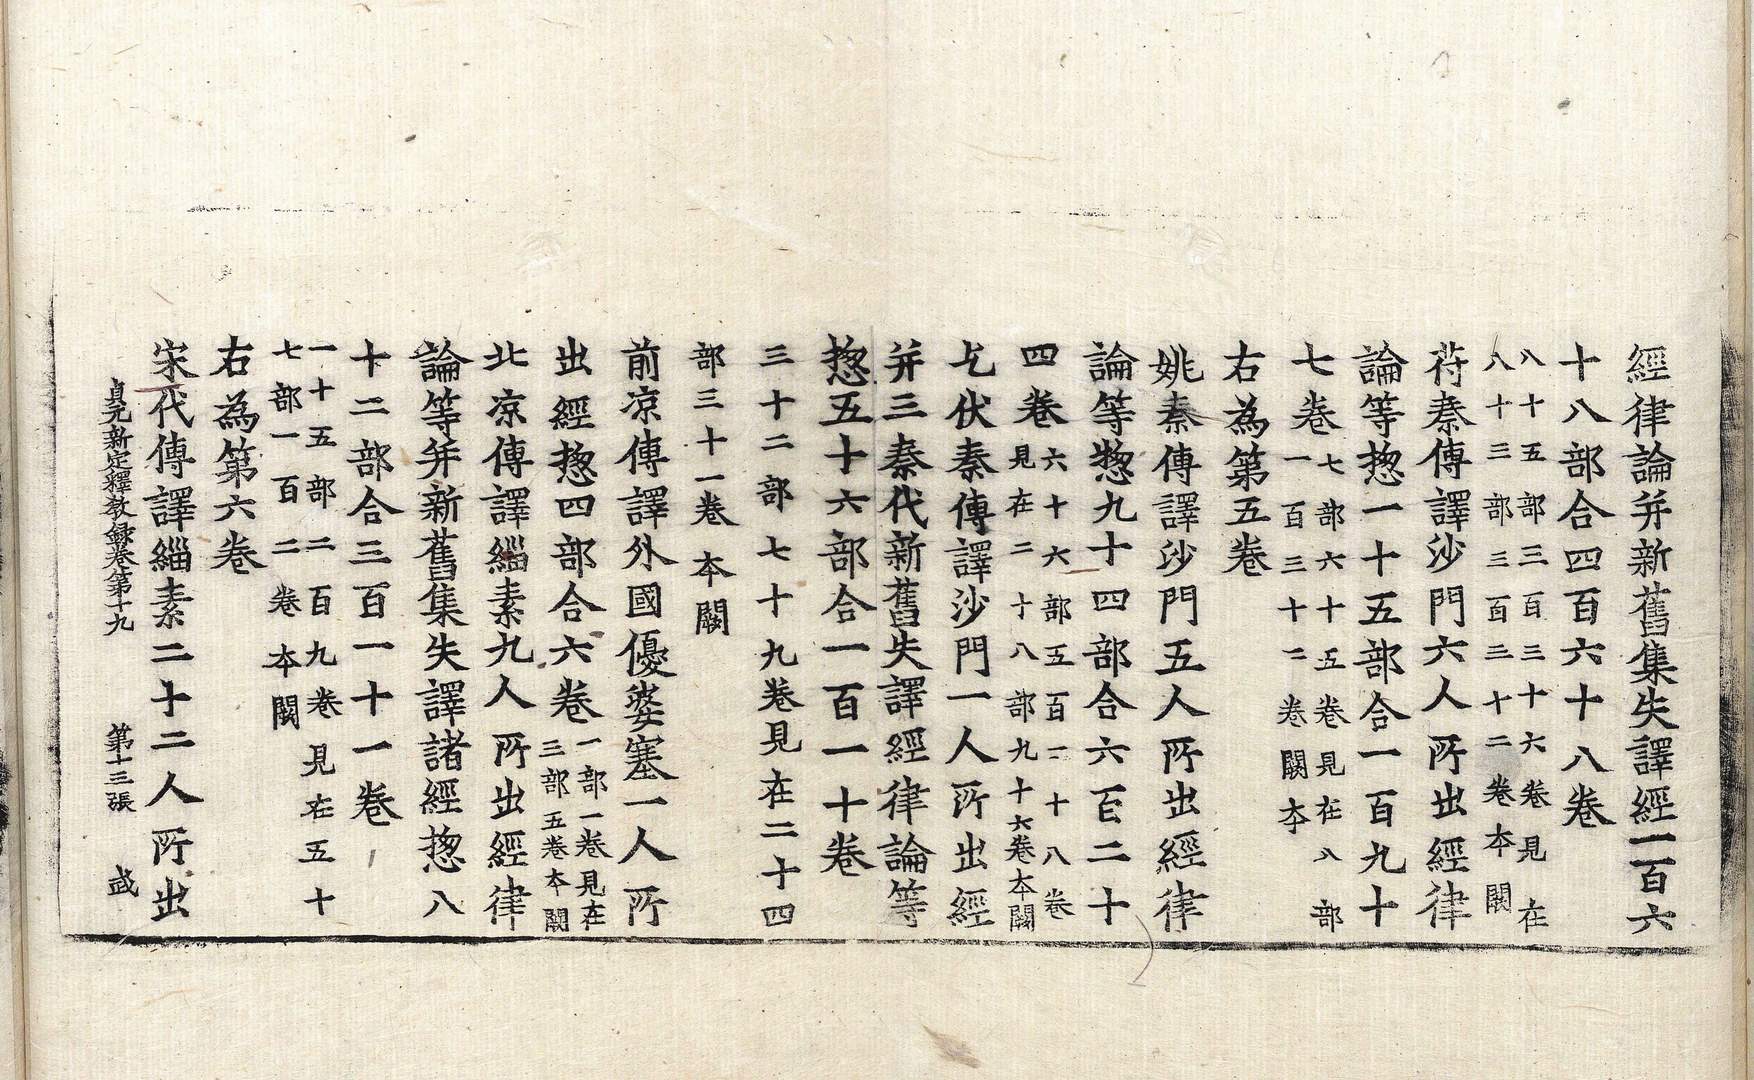 經律論并新舊集失譯經一百六
十八部合四百六十八卷
八十五部三百三十六卷見在
八十三部三百三十二卷本闕
苻秦傳譯沙門六人所出經律
論等揔一十五部合一百九十
七卷
七部六十五卷見在八部
一百三十二卷闕本
右為第五卷
姚秦傳譯沙門五人所出經律
論等揔九十四部合六百二十
四卷
六十六部五百二十八卷
見在二十八部九十六卷本闕
乞伏秦傳譯沙門一人所出經
并三秦代新舊失譯經律論等
揔五十六部合一百一十卷
三十二部七十九卷見在二十四
部三十一卷本闕
前涼傳譯外國優婆塞一人所
出經揔四部合六卷
一部一卷見在
三部五卷本闕
北涼傳譯緇素九人所出經律
論等并新舊集失譯諸經揔八
十二部合三百一十一卷
一十五部二百九卷見在五十
七部一百二卷本闕
右為第六卷
宋代傳譯緇素二十二人所出
貞元新定釋教録卷第十九 第十三張